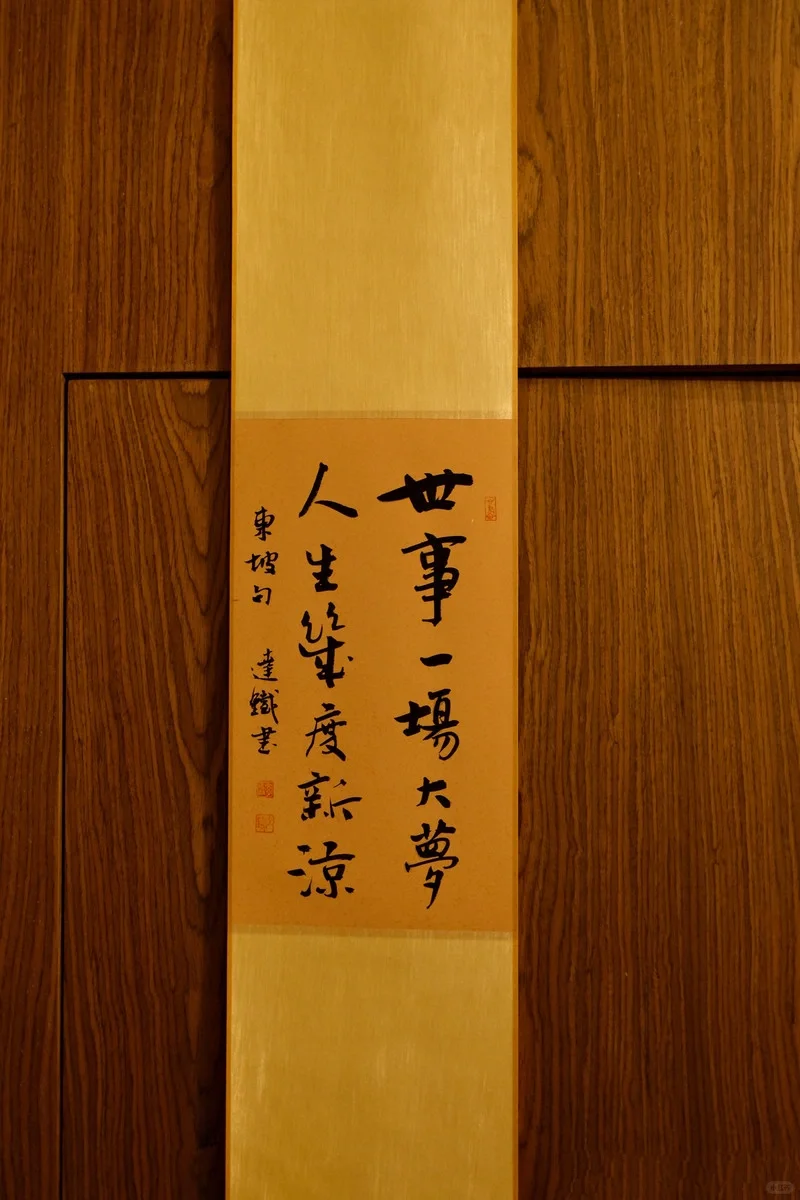 世事一場大夢
人生幾度新涼
東坡句 達鐵書